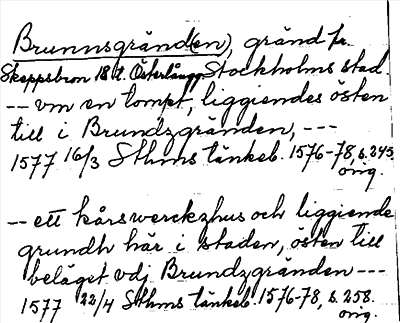 Brunnsgränd(en), gränd fr.
Skeppsbron 18 t. Österlångg. Stockholms stad.
-- vm en tompt, liggiendes östen
till i Brundzgränden, ---
1577 16/3 Sthms tänkeb. 1576-78, s. 245
orig.
-- ett kårswerckzhus och liggiende
grundh här i staden, östen till
beläget vdj Brundzgränden ---
1577 22/4 Sthms tänkeb. 1576-78, s. 258.
orig.